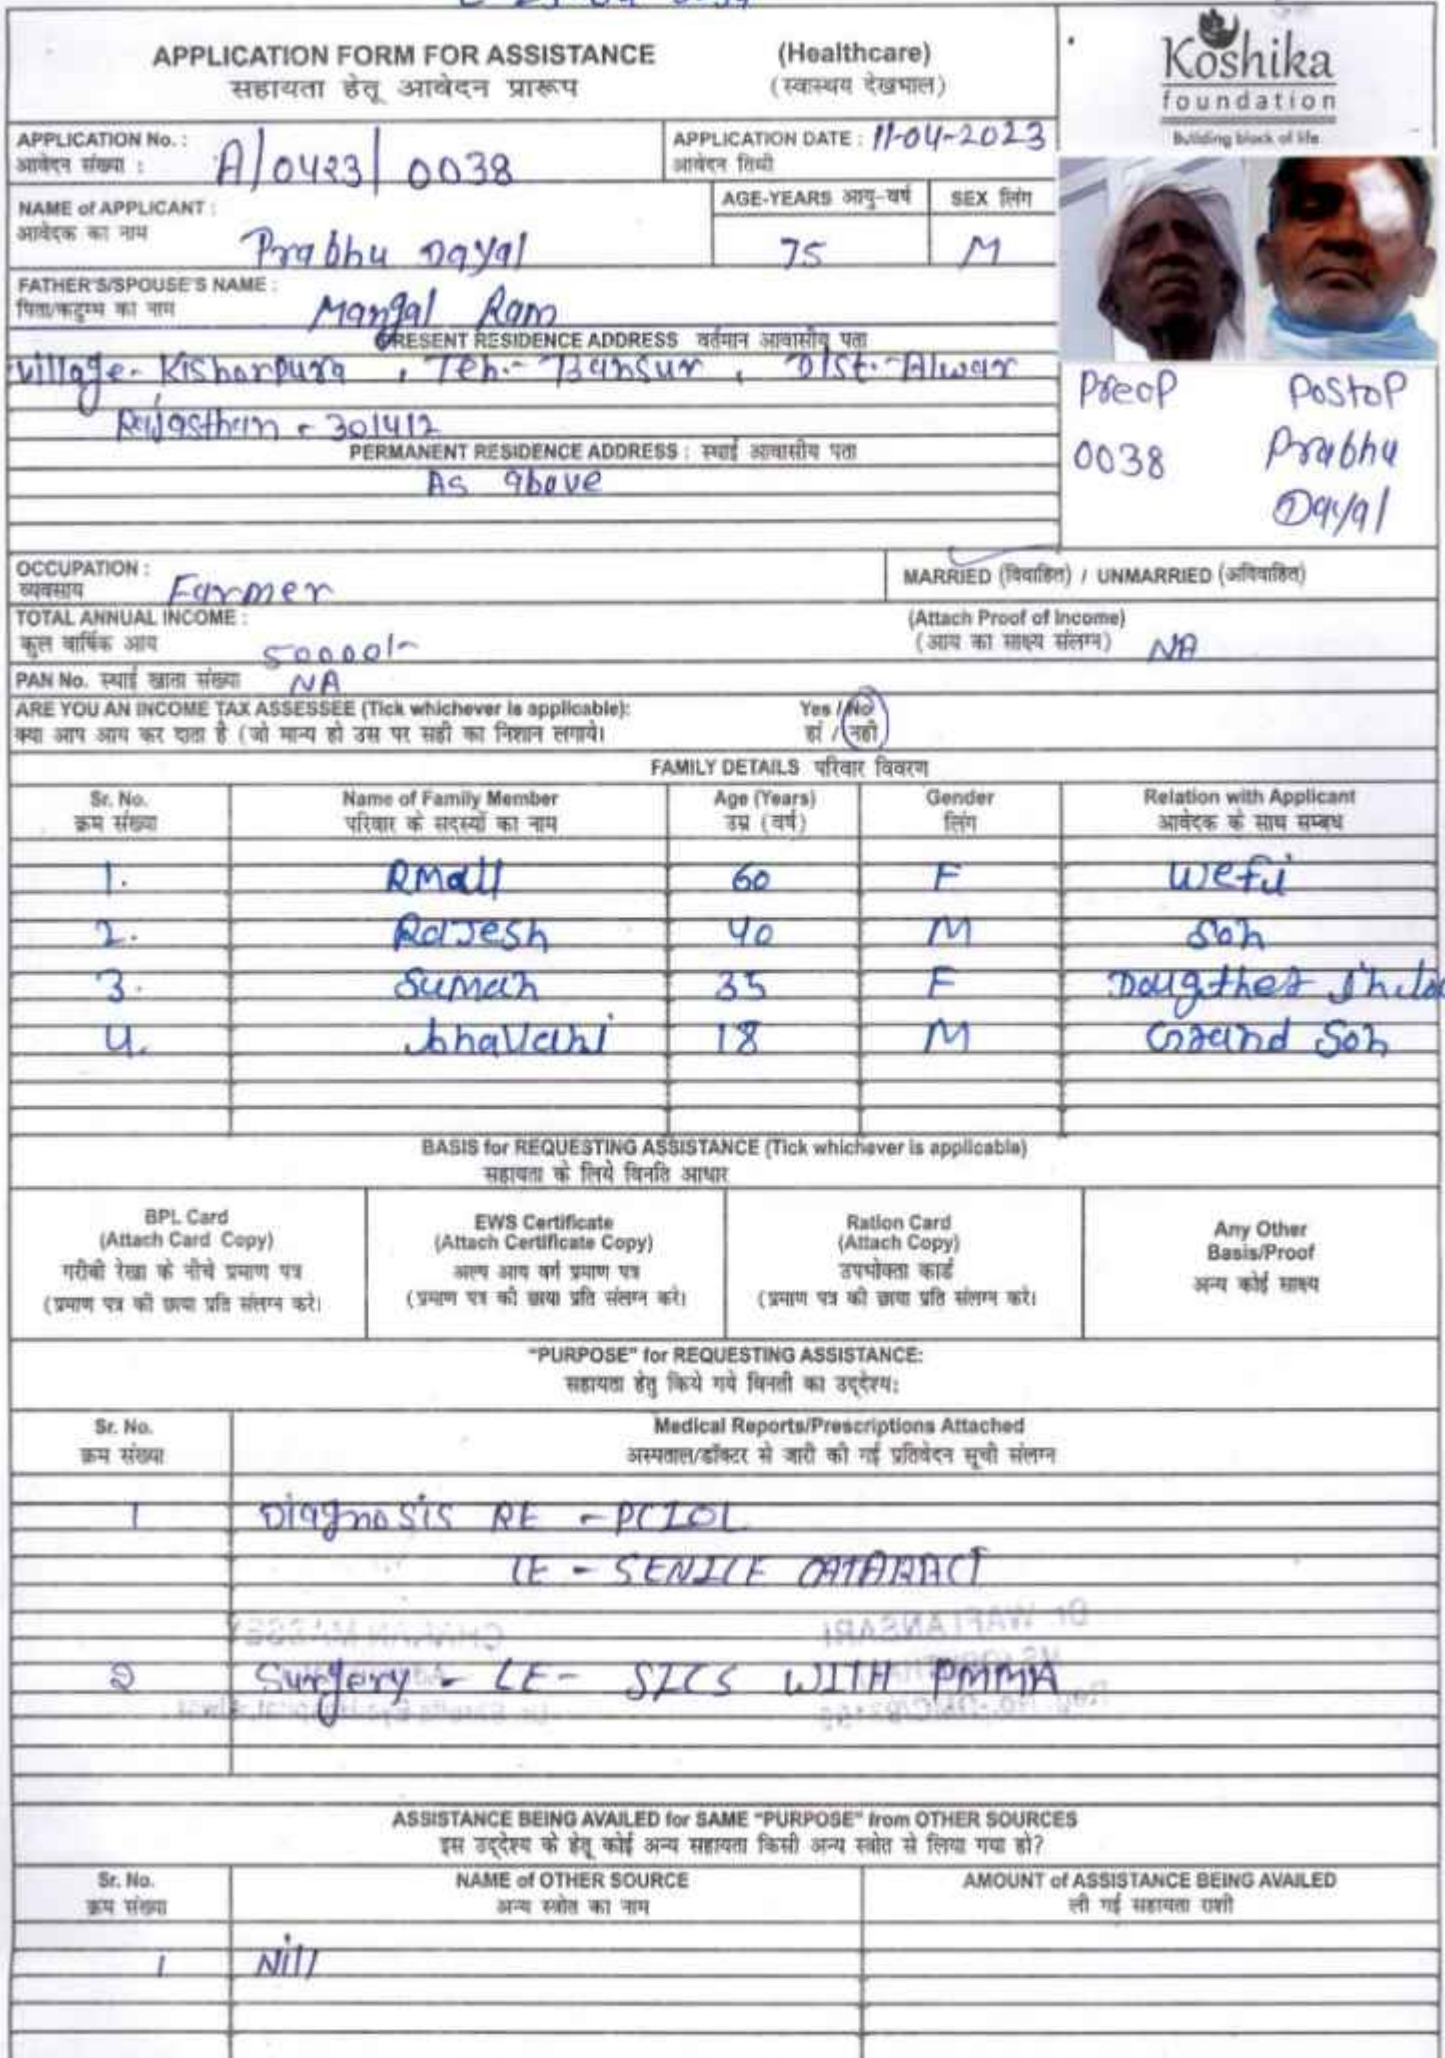 APPLICATION FORM FOR ASSISTANCE (Healthcare)
सहायता हेतू आवेदन प्रारूप (स्वास्थय देखभाल)
Koshika
foundation
Building block of life
APPLICATION No. : A/0423/0038
आवेदन संख्या :
APPLICATION DATE : 11-04-2023
आवेदन तिथी
NAME of APPLICANT : Prabhu Dayal
आवेदक का नाम
AGE-YEARS आयु-वर्ष 75
SEX लिंग M
FATHER'S/SPOUSE'S NAME : Mangal Ram
पिता/कटुम्ब का नाम
PRESENT RESIDENCE ADDRESS वर्तमान आवासीय पता
village- Kishorpura , Teh.- Bansur , Dist.- Alwar
Rajasthan - 301412
PERMANENT RESIDENCE ADDRESS : स्थाई आवासीय पता
As above
Preop Postop
0038 Prabhu
Dayal
OCCUPATION : Farmer
व्यवसाय
MARRIED (विवाहित) / UNMARRIED (अविवाहित)
TOTAL ANNUAL INCOME : 50000/-
कुल वार्षिक आय
(Attach Proof of Income) NA
(आय का साक्ष्य संलग्न)
PAN No. स्थाई खाता संख्या NA
ARE YOU AN INCOME TAX ASSESSEE (Tick whichever is applicable): Yes / No
क्या आप आय कर दाता है (जो मान्य हो उस पर सही का निशान लगाये। हां / नही
FAMILY DETAILS परिवार विवरण
Sr. No. Name of Family Member Age (Years) Gender Relation with Applicant
क्रम संख्या परिवार के सदस्यों का नाम उम्र (वर्ष) लिंग आवेदक के साथ सम्बध
1. 60 F wefi
2. Rajesh 40 M Son
3. Suman 35 F
4. 18 M Grand Son
BASIS for REQUESTING ASSISTANCE (Tick whichever is applicable)
सहायता के लिये विनति आधार
BPL Card
(Attach Card Copy)
गरीबी रेखा के नीचे प्रमाण पत्र
(प्रमाण पत्र की छाया प्रति संलग्न करे।
EWS Certificate
(Attach Certificate Copy)
अल्प आय वर्ग प्रमाण पत्र
(प्रमाण पत्र की छाया प्रति संलग्न करे।
Ration Card
(Attach Copy)
उपभोक्ता कार्ड
(प्रमाण पत्र की छाया प्रति संलग्न करे।
Any Other
Basis/Proof
अन्य कोई साक्ष्य
"PURPOSE" for REQUESTING ASSISTANCE:
सहायता हेतु किये गये विनती का उद्देश्य:
Sr. No. Medical Reports/Prescriptions Attached
क्रम संख्या अस्पताल/डॉक्टर से जारी की गई प्रतिवेदन सूची संलग्न
1 Diagnosis RE - PCIOL
LE - SENILE CATARACT
2 Surgery - LE - SICS WITH PMMA
ASSISTANCE BEING AVAILED for SAME "PURPOSE" from OTHER SOURCES
इस उद्देश्य के हेतू कोई अन्य सहायता किसी अन्य स्त्रोत से लिया गया हो?
Sr. No. NAME of OTHER SOURCE AMOUNT of ASSISTANCE BEING AVAILED
क्रम संख्या अन्य स्त्रोत का नाम ली गई सहायता राशी
1 Nill